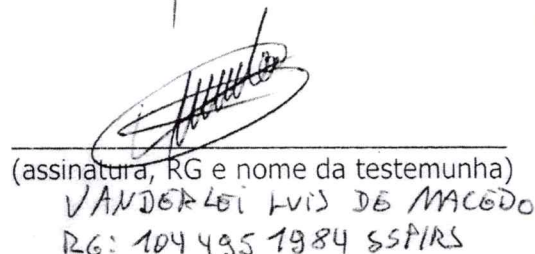 (assinatura, RG e nome da testemunha)
VANDERLEI LUIS DE MACEDO
RG: 104 495 1984 SSP/RS